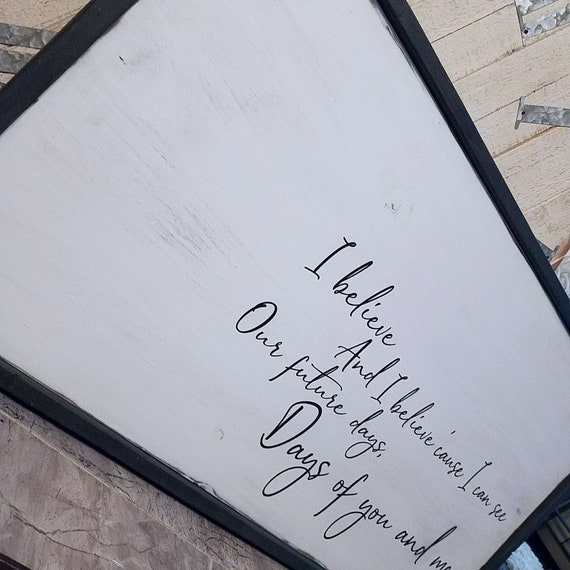 I believe
And I believe 'cause I can see
Our future days,
Days of you and me